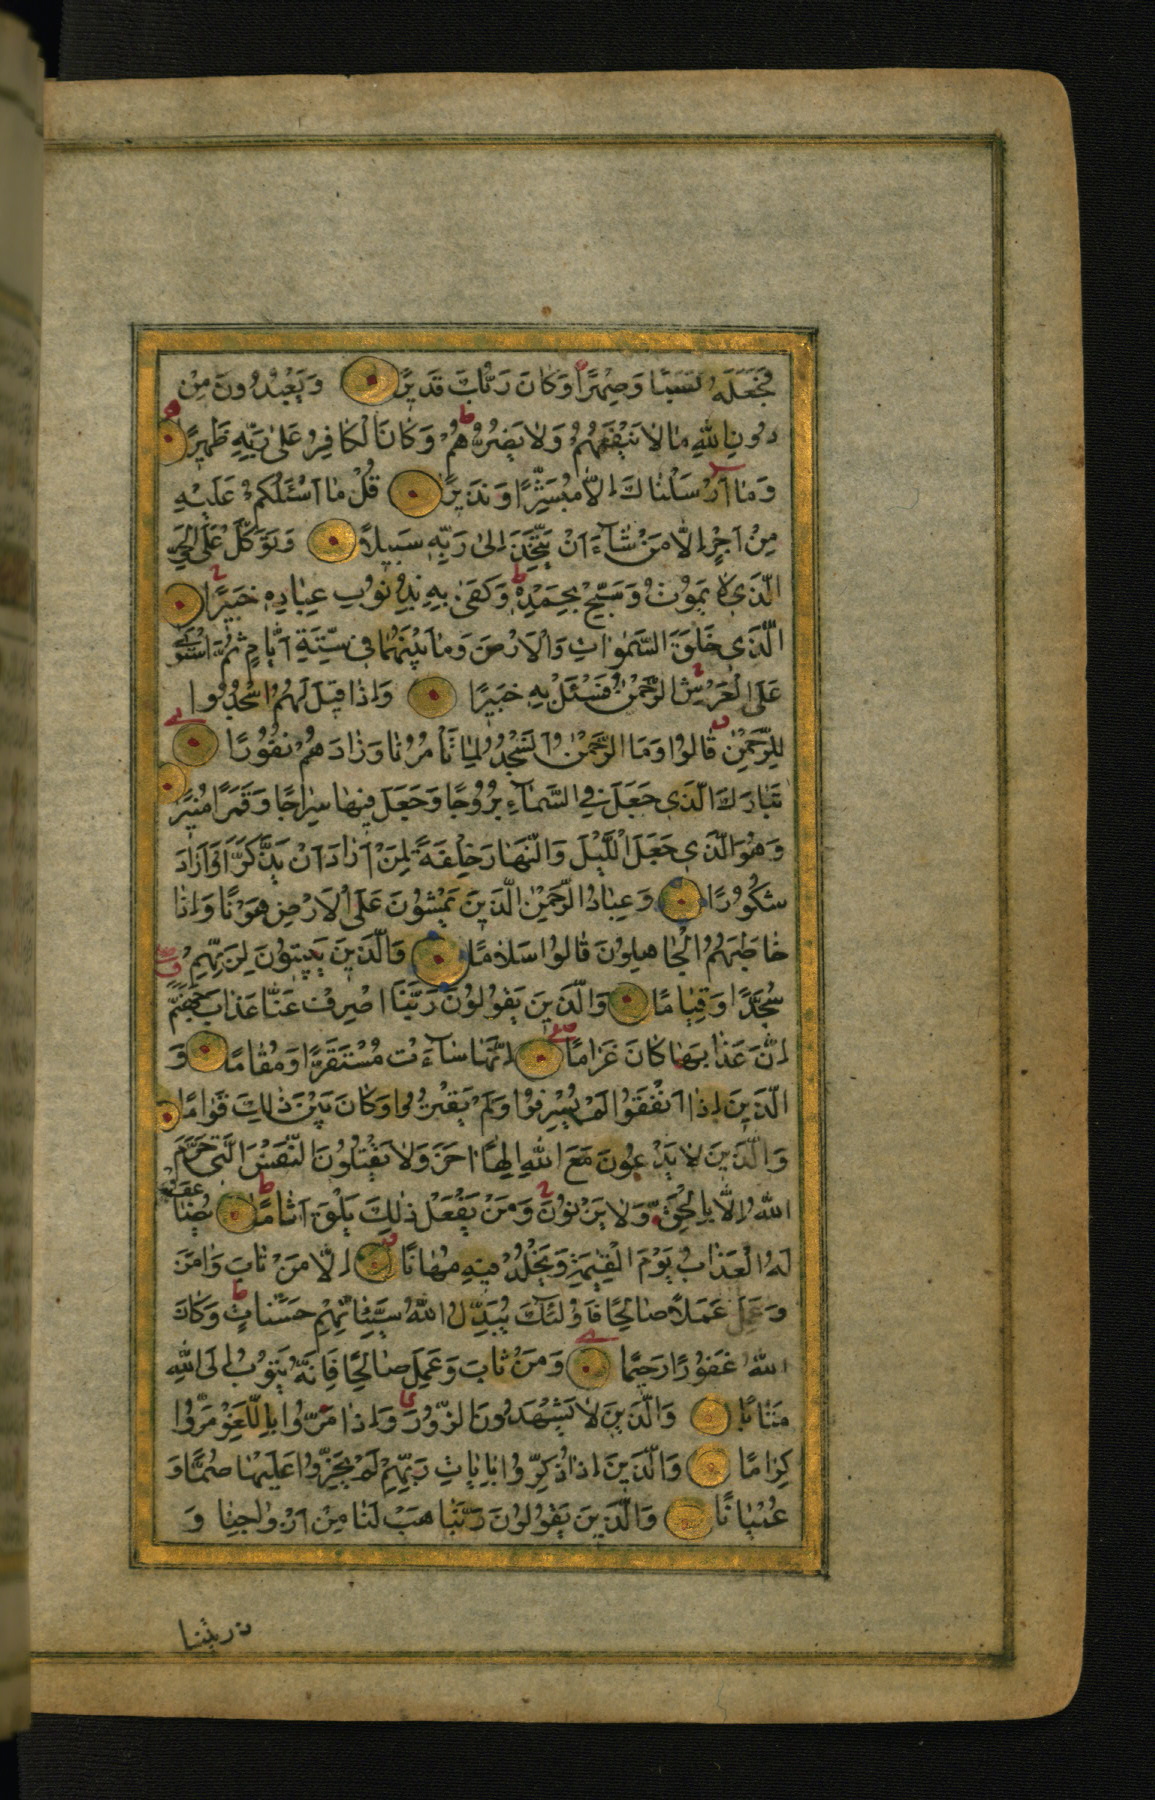 فَجَعَلَهُ نَسَبًا وَصِهْرًا وَكَانَ رَبُّكَ قَدِيرًا وَيَعْبُدُونَ مِنْ
دُونِ اللّٰهِ مَا لَا يَنْفَعُهُمْ وَلَا يَضُرُّهُمْ وَكَانَ الْكَافِرُ عَلٰى رَبِّهِ ظَهِيرًا
وَمَا أَرْسَلْنَاكَ إِلَّا مُبَشِّرًا وَنَذِيرًا قُلْ مَا أَسْئَلُكُمْ عَلَيْهِ
مِنْ أَجْرٍ إِلَّا مَنْ شَاءَ أَنْ يَتَّخِذَ إِلٰى رَبِّهِ سَبِيلًا وَتَوَكَّلْ عَلَى الْحَيِّ
الَّذِي لَا يَمُوتُ وَسَبِّحْ بِحَمْدِهِ وَكَفٰى بِهِ بِذُنُوبِ عِبَادِهِ خَبِيرًا
الَّذِي خَلَقَ السَّمٰوَاتِ وَالْأَرْضَ وَمَا بَيْنَهُمَا فِي سِتَّةِ أَيَّامٍ ثُمَّ اسْتَوٰى
عَلَى الْعَرْشِ الرَّحْمٰنُ فَسْئَلْ بِهِ خَبِيرًا وَإِذَا قِيلَ لَهُمُ اسْجُدُوا
لِلرَّحْمٰنِ قَالُوا وَمَا الرَّحْمٰنُ أَنَسْجُدُ لِمَا تَأْمُرُنَا وَزَادَهُمْ نُفُورًا
تَبَارَكَ الَّذِي جَعَلَ فِي السَّمَاءِ بُرُوجًا وَجَعَلَ فِيهَا سِرَاجًا وَقَمَرًا مُنِيرًا
وَهُوَ الَّذِي جَعَلَ اللَّيْلَ وَالنَّهَارَ خِلْفَةً لِمَنْ أَرَادَ أَنْ يَذَّكَّرَ أَوْ أَرَادَ
شُكُورًا وَعِبَادُ الرَّحْمٰنِ الَّذِينَ يَمْشُونَ عَلَى الْأَرْضِ هَوْنًا وَإِذَا
خَاطَبَهُمُ الْجَاهِلُونَ قَالُوا سَلَامًا وَالَّذِينَ يَبِيتُونَ لِرَبِّهِمْ
سُجَّدًا وَقِيَامًا وَالَّذِينَ يَقُولُونَ رَبَّنَا اصْرِفْ عَنَّا عَذَابَ جَهَنَّمَ
إِنَّ عَذَابَهَا كَانَ غَرَامًا إِنَّهَا سَاءَتْ مُسْتَقَرًّا وَمُقَامًا وَ
الَّذِينَ إِذَا أَنْفَقُوا لَمْ يُسْرِفُوا وَلَمْ يَقْتُرُوا وَكَانَ بَيْنَ ذٰلِكَ قَوَامًا
وَالَّذِينَ لَا يَدْعُونَ مَعَ اللّٰهِ إِلٰهًا اٰخَرَ وَلَا يَقْتُلُونَ النَّفْسَ الَّتِي حَرَّمَ
اللّٰهُ إِلَّا بِالْحَقِّ وَلَا يَزْنُونَ وَمَنْ يَفْعَلْ ذٰلِكَ يَلْقَ أَثَامًا يُضَاعَفْ
لَهُ الْعَذَابُ يَوْمَ الْقِيٰمَةِ وَيَخْلُدْ فِيهِ مُهَانًا إِلَّا مَنْ تَابَ وَاٰمَنَ
وَعَمِلَ عَمَلًا صَالِحًا فَأُولٰئِكَ يُبَدِّلُ اللّٰهُ سَيِّئَاتِهِمْ حَسَنَاتٍ وَكَانَ
اللّٰهُ غَفُورًا رَحِيمًا وَمَنْ تَابَ وَعَمِلَ صَالِحًا فَإِنَّهُ يَتُوبُ إِلَى اللّٰهِ
مَتَابًا وَالَّذِينَ لَا يَشْهَدُونَ الزُّورَ وَإِذَا مَرُّوا بِاللَّغْوِ مَرُّوا
كِرَامًا وَالَّذِينَ إِذَا ذُكِّرُوا بِاٰيَاتِ رَبِّهِمْ لَمْ يَخِرُّوا عَلَيْهَا صُمًّا وَ
عُمْيَانًا وَالَّذِينَ يَقُولُونَ رَبَّنَا هَبْ لَنَا مِنْ أَزْوَاجِنَا وَ